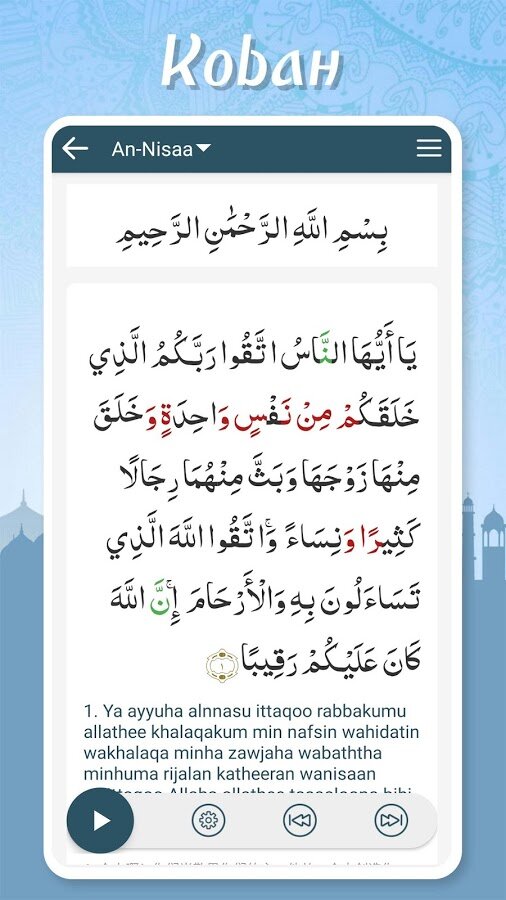 Кобан
An-Nisaa
بِسْمِ اللَّهِ الرَّحْمَٰنِ الرَّحِيمِ
يَا أَيُّهَا النَّاسُ اتَّقُوا رَبَّكُمُ الَّذِي
خَلَقَكُمْ مِنْ نَفْسٍ وَاحِدَةٍ وَخَلَقَ
مِنْهَا زَوْجَهَا وَبَثَّ مِنْهُمَا رِجَالًا
كَثِيرًا وَنِسَاءً ۚ وَاتَّقُوا اللَّهَ الَّذِي
تَسَاءَلُونَ بِهِ وَالْأَرْحَامَ ۚ إِنَّ اللَّهَ
كَانَ عَلَيْكُمْ رَقِيبًا ١
1. Ya ayyuha alnnasu ittaqoo rabbakumu
allathee khalaqakum min nafsin wahidatin
wakhalaqa minha zawjaha wabaththa
minhuma rijalan katheeran wanisaan